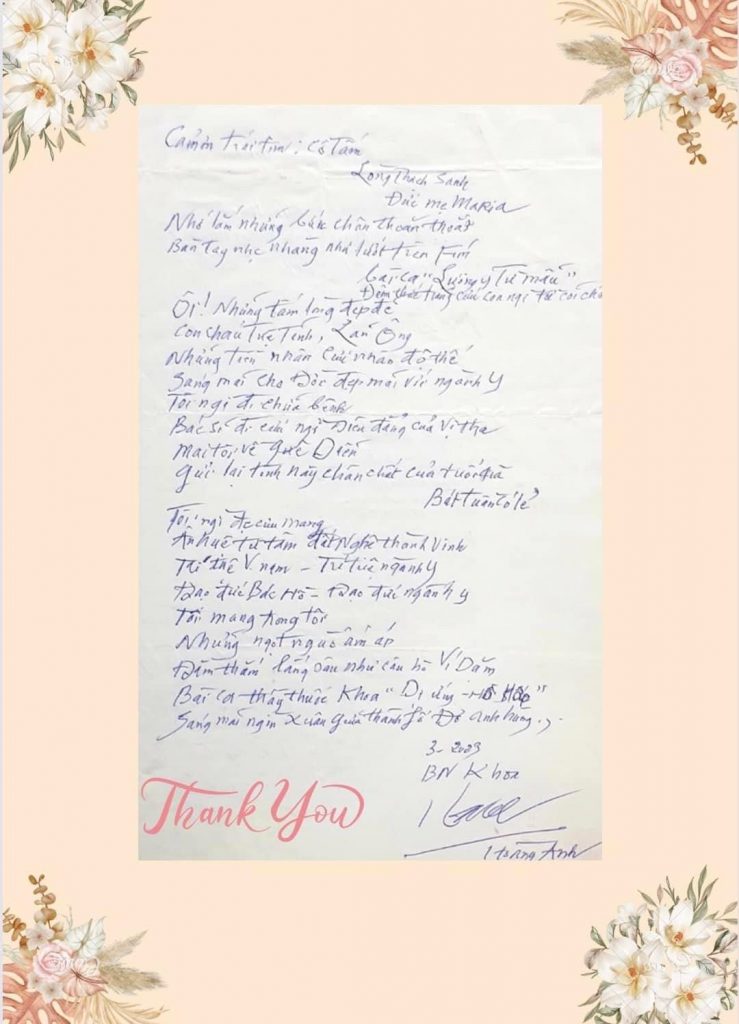 Cảm ơn trái tim: Cô Tấm
Lòng Thạch Sanh
Đức mẹ MARIA
Nhớ lắm những bước chân thoăn thoắt
Bàn tay nhẹ nhàng như lướt trên Fím
Bài ca "Lương y Từ mẫu"
Đêm thức trắng cứu con ngi từ cõi chết
Ôi! Những tấm lòng đẹp đẽ
Con cháu Tuệ Tĩnh, Lãn Ông
Những nhân cứu nhân độ thế
Sáng mãi cho Đời đẹp mãi với ngành Y
Tôi ngi đi chữa bệnh
Bác sĩ đi cứu ngi của Vị tha
Mai tôi về quê
Gửi lại tình này chân chất của tuổi già
Bát tuần có lẻ
Tôi, ngi đc cưu mang
Ân huệ từ tâm đất Nghệ thành Vinh
Trí tuệ V nam - Trí tuệ ngành Y
Đạo đức Bác Hồ - Đạo đức ngành y
Tôi mang trong tôi
Những ngọt ngào ấm áp
Đằm thắm lắng sâu như câu hò Ví Dặm
Bài ca thầy thuốc Khoa "Dị ứng - Hô Hấp"
Sáng mãi ngìn Xuân giữa thành fố Đỏ anh hùng.
BN Khoa
Hoàng Anh
Thank You